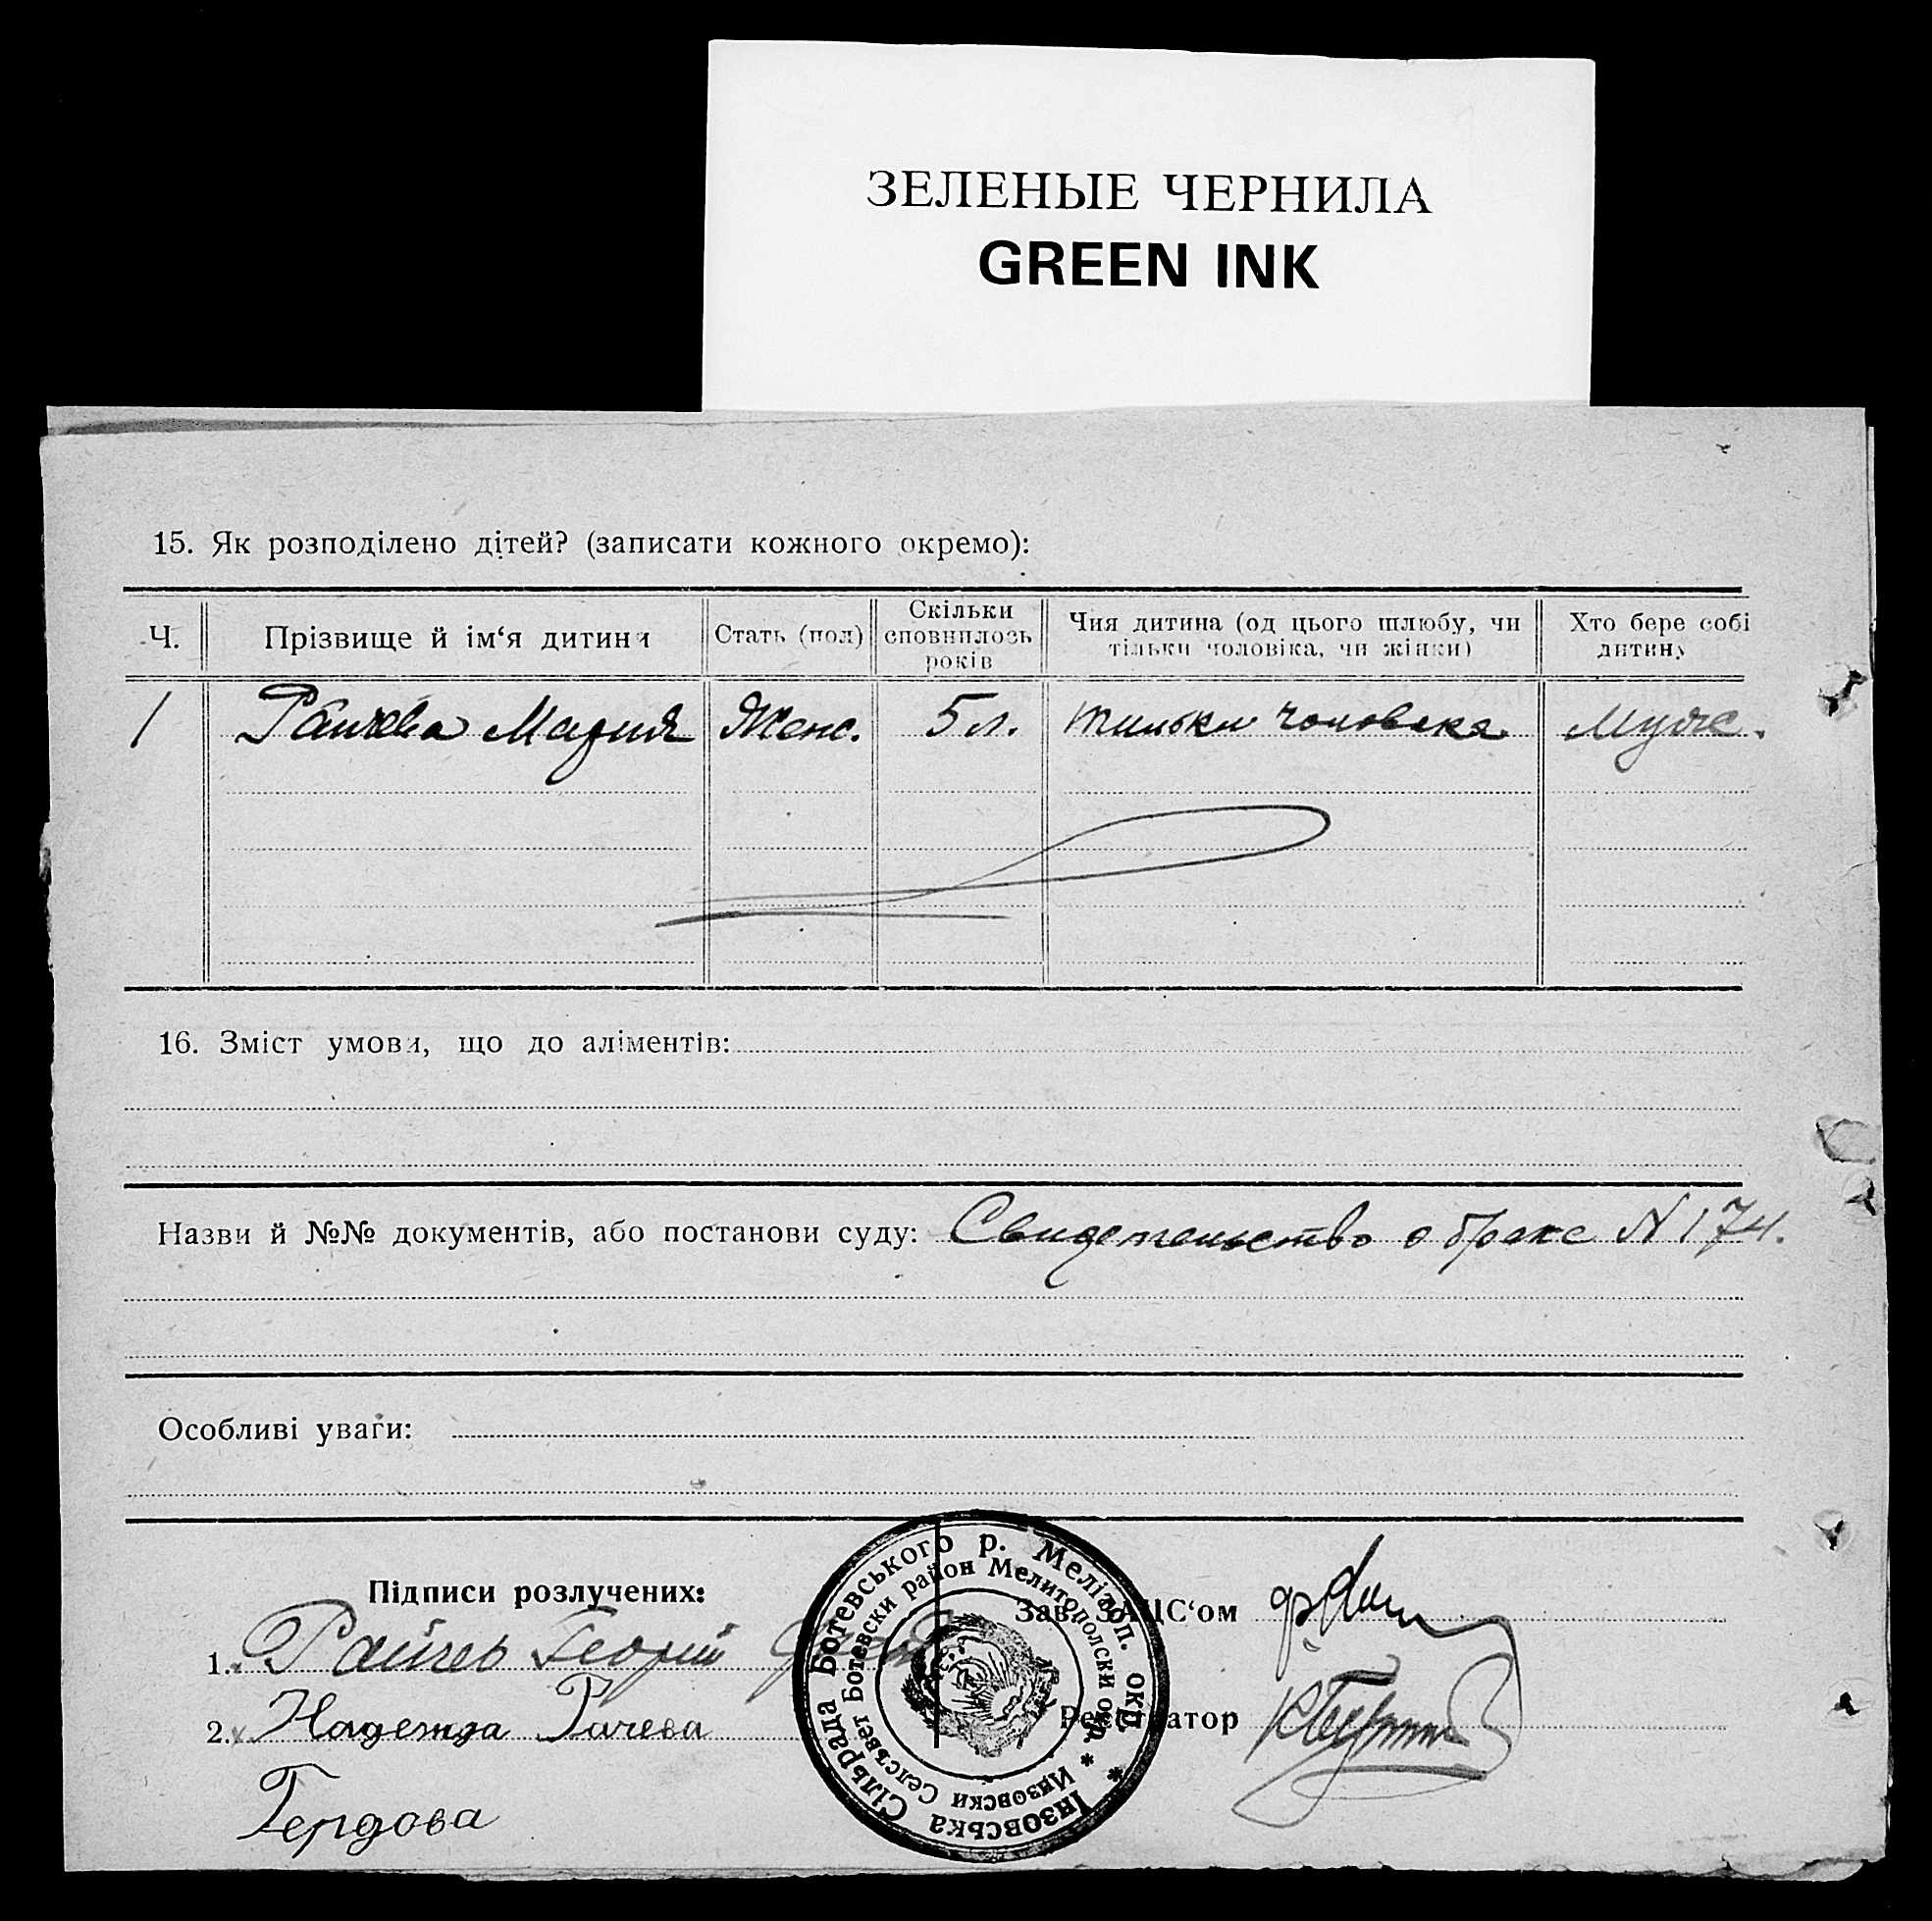 ЗЕЛЕНЫЕ ЧЕРНИЛА
GREEN INK
15. Як розподілено дітей? (записати кожного окремо):
Ч. Прізвище й ім‘я дитини Стать (пол) Скільки сповнилось років Чия дитина (од цього шлюбу, чи тільки чоловіка, чи жінки) Хто бере собі дитину
1 Райчева Мария Женс. 5 л. тильки чоловека Муже.
16. Зміст умови, що до аліментів:
Назви й №№ документів, або постанови суду: Свидетельство о браке N 174.
Особливі уваги:
Підписи розлучених:
Зав. ЗАЦС‘ом
1. Райчев Георгий
Реєстратор
2. Надежда Рачева
Гердова
Інзовська Сільрада Ботевського р. Мелітоп. окр. *
Инзовски Селсъвет Ботевски район Мелитополски окр. *